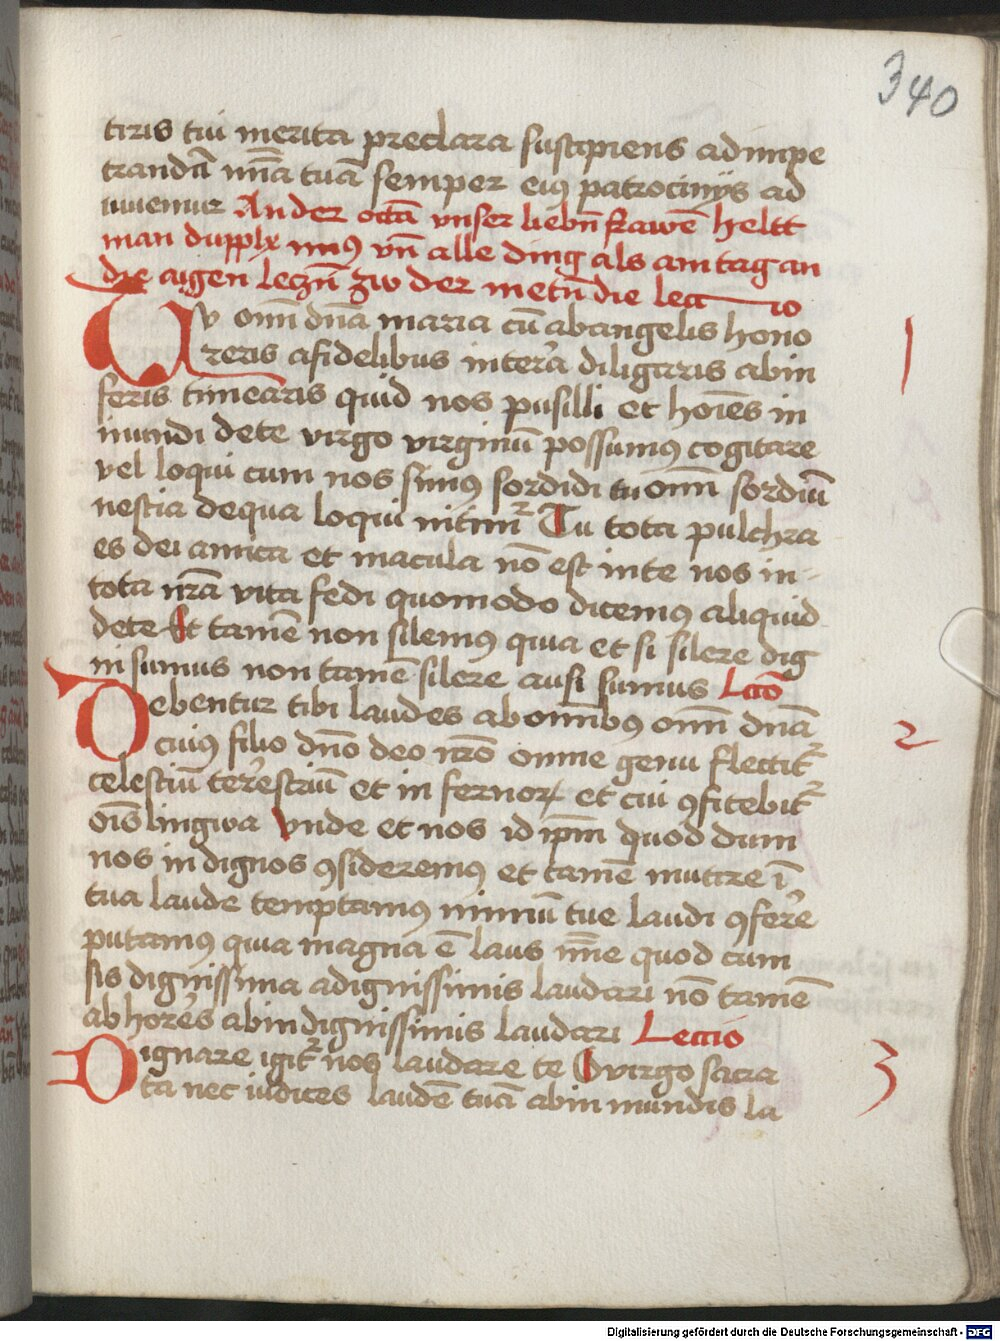 340
tiris tui merita preclara suscipiens ad impe
trandā mīam tuā semper eiꝰ patrocinijs ad
iuuemur An der octā vnser liebn̄ frawē heltt
man dupplx imꝰ vn̄ alle ding als am tag an
die aigen leczn̄ zw der metn̄ die lectio
Cv om̄ dn̄a maria cū ab angelis hono
reris a fidelibus in terra diligaris ab in
feris timearis quid nos pusilli et hoīes in
mundi de te virgo virginū possumꝰ cogitare
vel loqui cum nos simꝰ sordidi tu om̄ sordiū
nescia de qua loqui nitimr Tu tota pulchra
es dei amica et macula nō est in te nos in
tota nrā vita fedi quomodo dicemꝰ aliquid
de te Et tamē non silemꝰ quia et si silere dig
ni sumus non tamē silere ausi sumus Lctō
Debentur tibi laudes ab omībꝰ om̄ dn̄ā
cuiꝰ filio dn̄o deo nr̄o omne genu flectitr
celestiū terrestriū et in fernoꝝ et cui ꝯfitebitr
oīs lingwa Vnde et nos id ip̄m quod dum
nos in dignos ꝯsideremꝰ et tamē mutire ī
tua laude temptamꝰ nimiū tue laudi ꝯferre
putamꝰ quia magna ē laus īme quod cum
sis dignissima a dignissimis laudari nō tamē
ab horres ab in dignissimis laudari Lectio
Dignare igitr nos laudare te O virgo sacra
ta nec iudices laudē tuā ab in mundis la
1
2
3
Digitalisierung gefördert durch die Deutsche Forschungsgemeinschaft - DFG